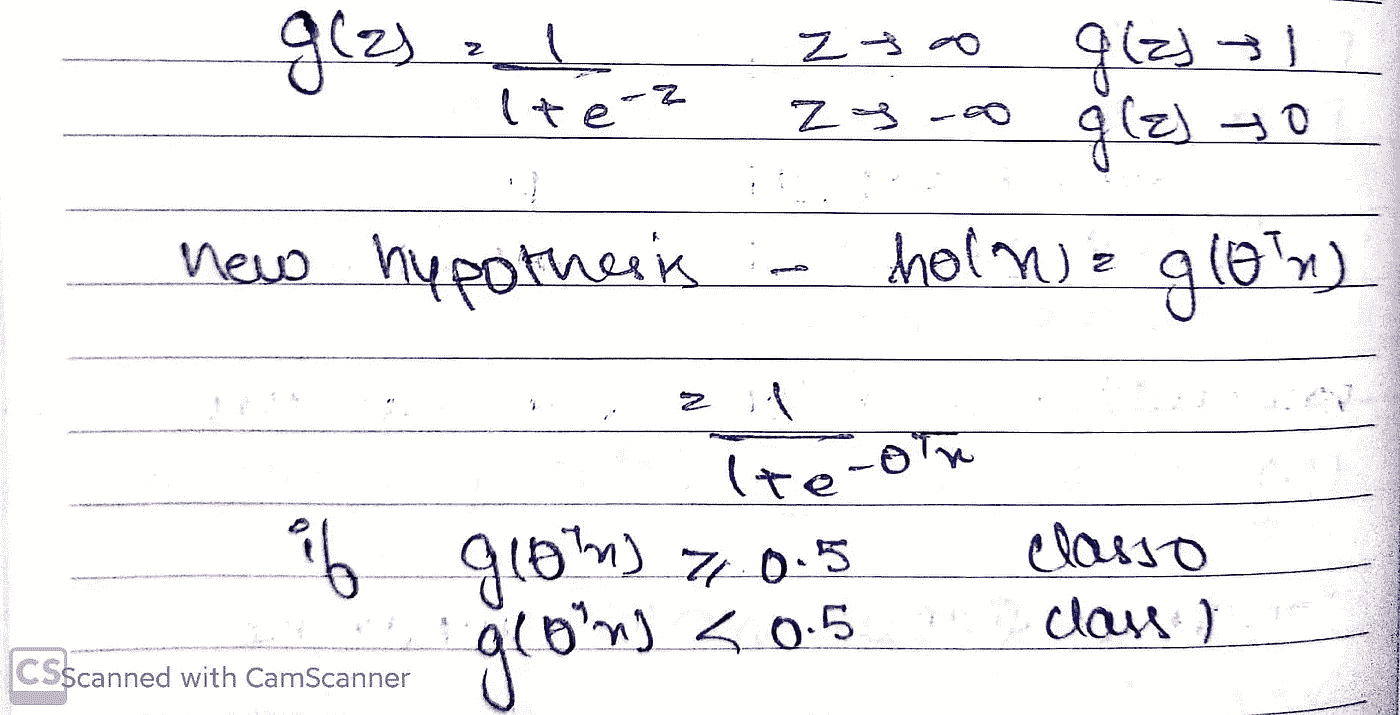 g(z) = 1 / (1 + e^-z)    z → ∞    g(z) → 1
z → -∞    g(z) → 0
new hypothesis - hθ(x) = g(θ^T x)
= 1 / (1 + e^-θ^T x)
if g(θ^T x) ≥ 0.5    class 0
g(θ^T x) < 0.5    class 1
CS Scanned with CamScanner